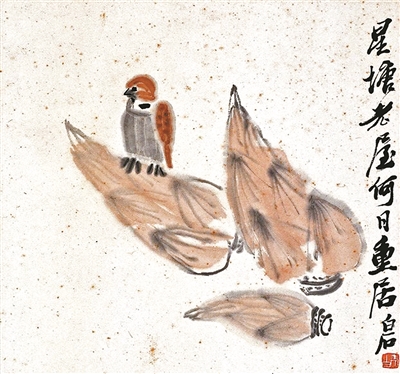 星塘老屋何日重居白石